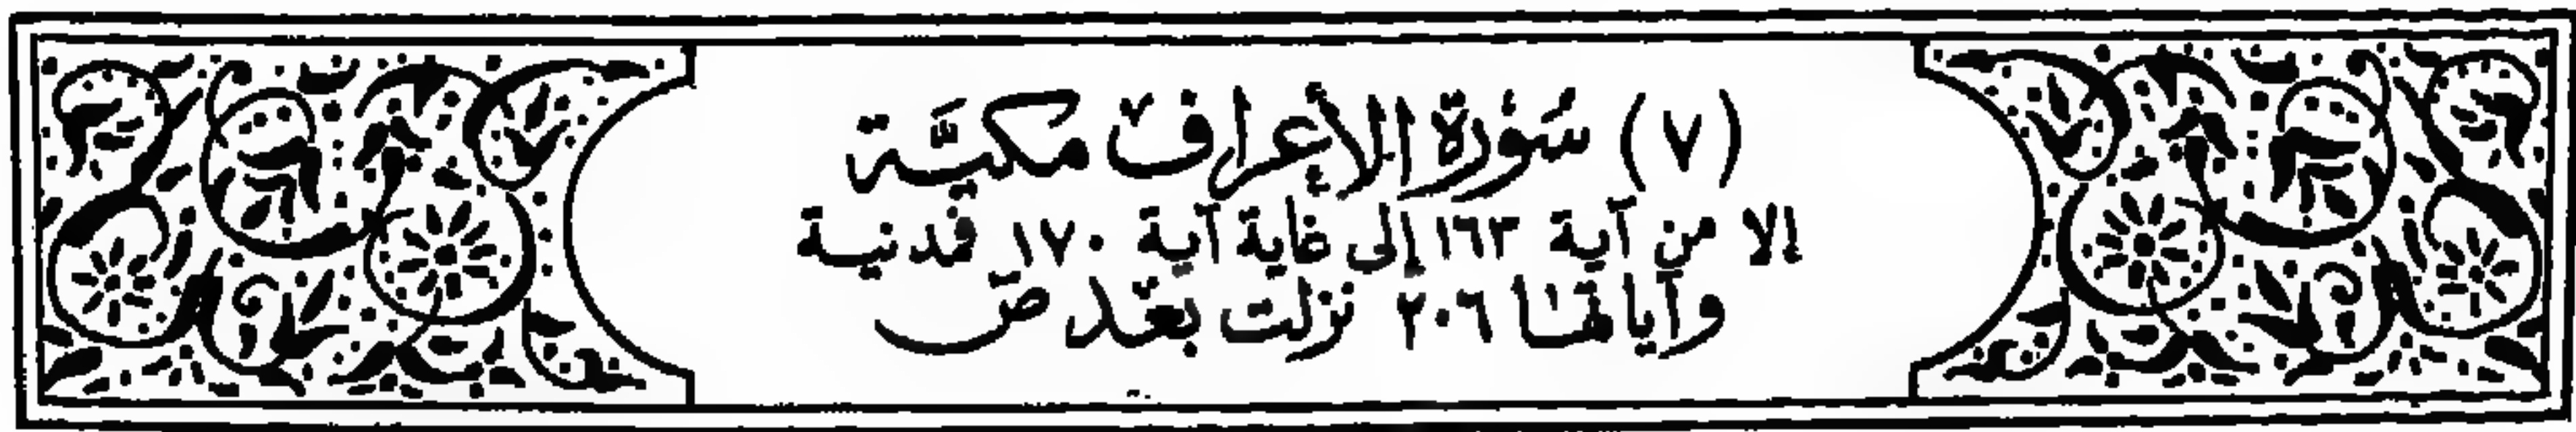 (٧) سُوۡرَةُ الأعراف مَكيَّة
إلا من آية ١٦٣ إلى غاية آية ١٧٠ فمدنية
وآياتها ٢٠٦ نزلت بعد ص